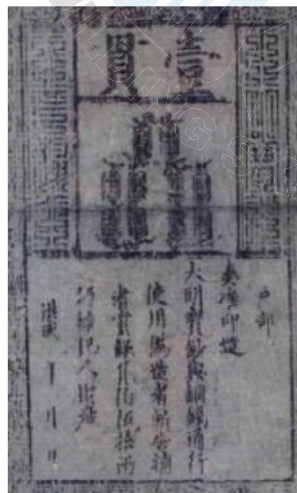 壹貫
戶部
奏准印造
大明寶鈔與銅錢通行
使用偽造者斬告捕
者賞銀貳佰伍拾兩
仍給犯人財產
洪武 年 月 日